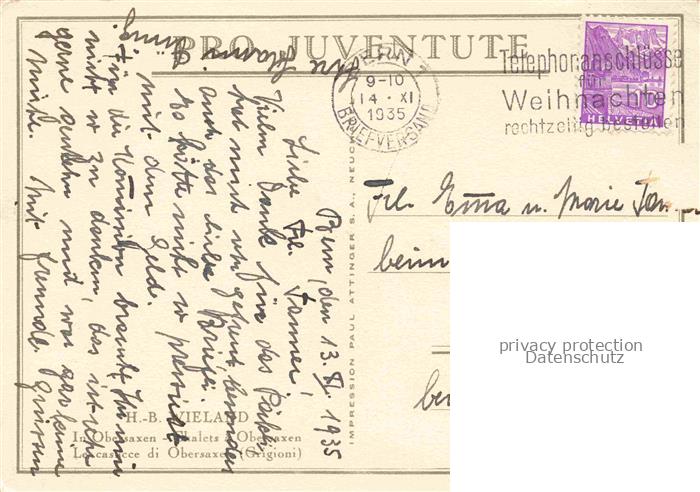 PRO JUVENTUTE
BERN 1
9-10
14·XI
1935
BRIEFVERSAND
Telephonanschlüsse
für
Weihnachten
rechtzeitig bestellen
10
HELVETIA
Frl. Emma u. Marie Tan-
beim
bei
privacy protection
Datenschutz
Bern, den 13. XI. 1935
Liebe Frl. Tanner,
Vielen Dank für das Päckli
hat mich sehr gefreut besonders
auch der liebe Brief.
Es hätte nicht so pressiert
mit dem Geld.
Für die Kommission braucht Ihr mir
nicht so zu danken, das ist sehr
gerne geschehn und war gar keine
Mühe. Mit freundl. Grüssen
IMPRESSION PAUL ATTINGER S. A., NEUC
H.-B. WIELAND
In Obersaxen - Chalets à Obersaxen
Le cascine di Obersaxen (Grigioni)